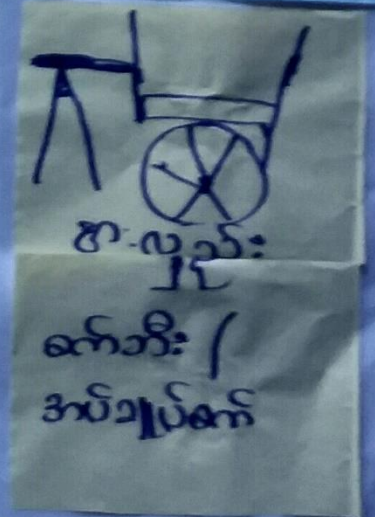 စာ-လှည်း
စက်ဘီး /
အပ်ချုပ်စက်